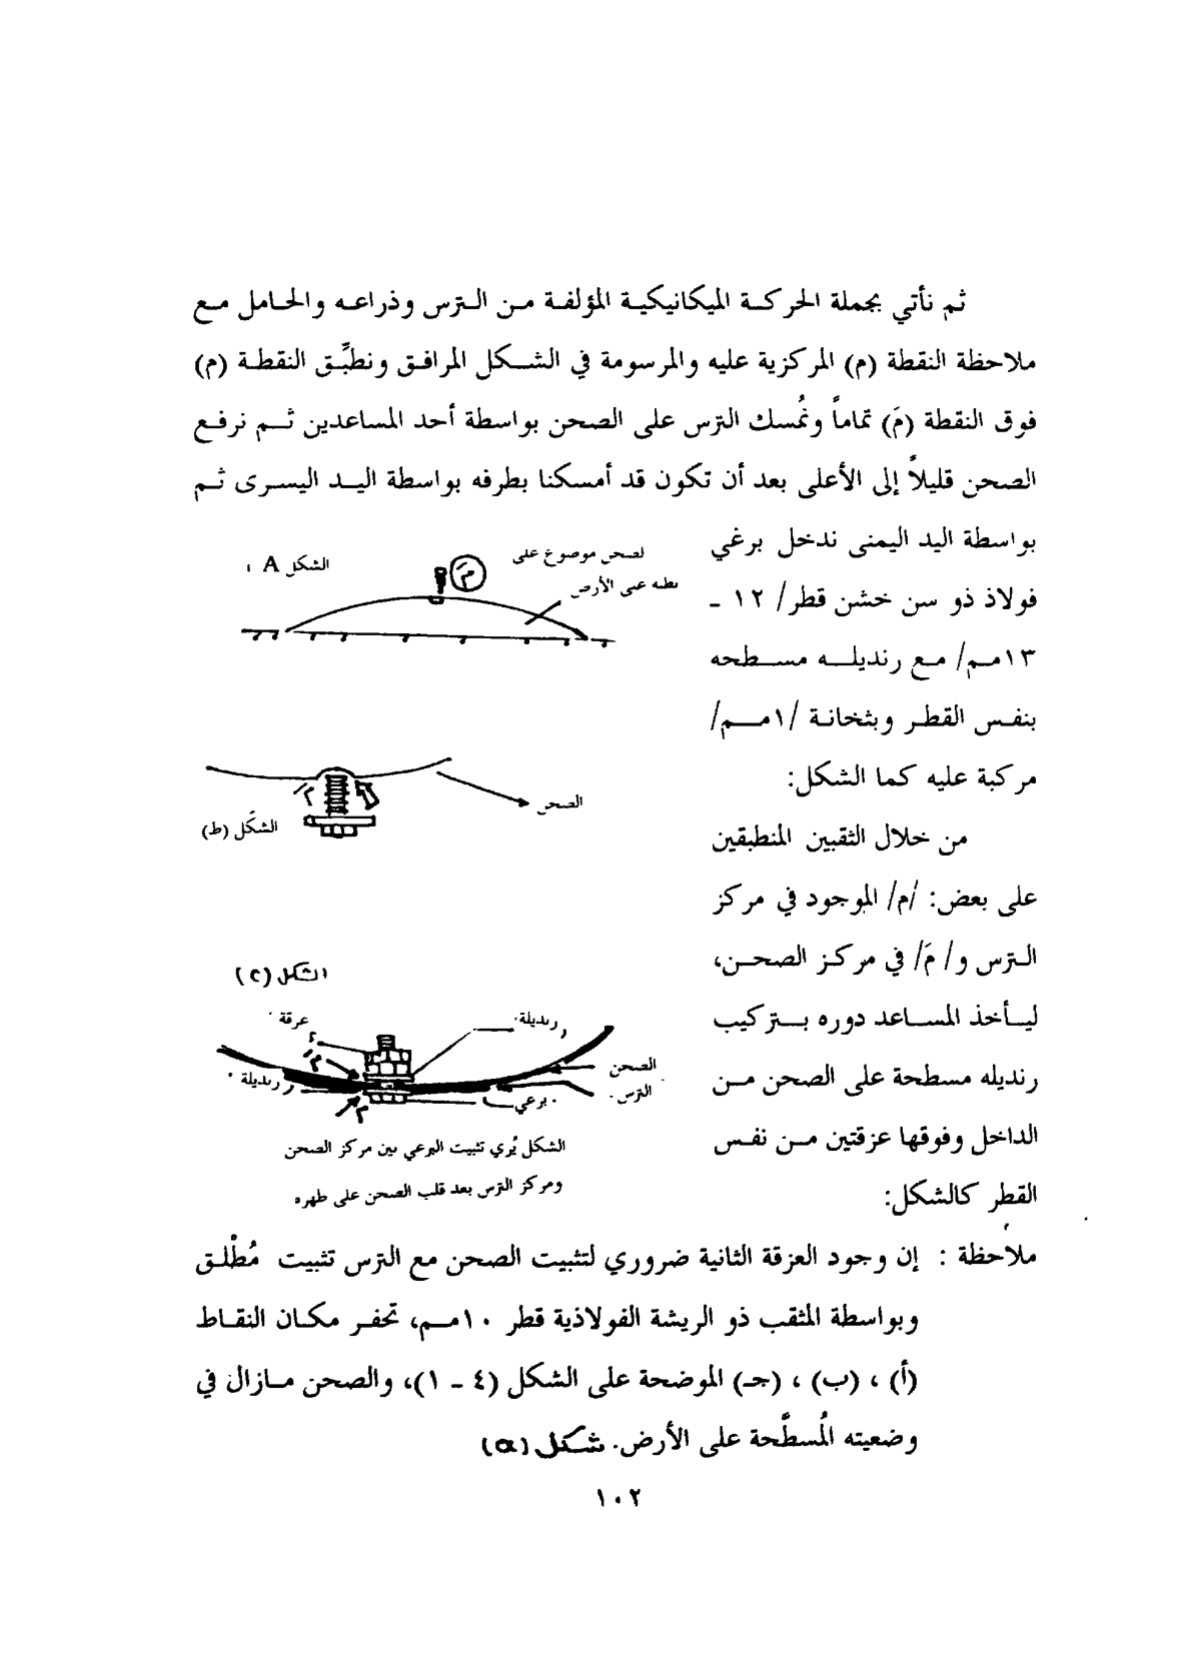 ثم نأتي بجملة الحركة الميكانيكية المؤلفة من الترس وذراعه والحامل مع
ملاحظة النقطة (م) المركزية عليه والمرسومة في الشكل المرافق ونطبِّق النقطة (م)
فوق النقطة (مَ) تماماً ونُمسك الترس على الصحن بواسطة أحد المساعدين ثم نرفع
الصحن قليلاً إلى الأعلى بعد أن تكون قد أمسكنا بطرفه بواسطة اليد اليسرى ثم
بواسطة اليد اليمنى ندخل برغي
فولاذ ذو سن خشن قطر/ ١٢ -
١٣مم/ مع رنديله مسطحه
بنفس القطر وبثخانة /١مم/
مركبة عليه كما الشكل:
الشكل A
لصحن موضوع على
الأرض
مَ
الصحن
الشكل (ط)
م
من خلال الثقبين المنطبقين
على بعض: /م/ الموجود في مركز
الترس و/ مَ/ في مركز الصحن،
ليأخذ المساعد دوره بتركيب
رنديله مسطحة على الصحن من
الداخل وفوقها عزقتين من نفس
القطر كالشكل:
الشكل (c)
عزقة
رنديلة
٢
مَ
الصحن
رنديلة
الترس
برغي
م
الشكل يُري تثبيت البرغي بين مركز الصحن
ومركز الترس بعد قلب الصحن على ظهره
ملاحظة : إن وجود العزقة الثانية ضروري لتثبيت الصحن مع الترس تثبيت مُطْلق
وبواسطة المثقب ذو الريشة الفولاذية قطر ١٠مم، تحفر مكان النقاط
(أ) ، (ب) ، (جـ) الموضحة على الشكل (٤ - ١)، والصحن مازال في
وضعيته المُسطَّحة على الأرض. شكل (a)
١٠٢